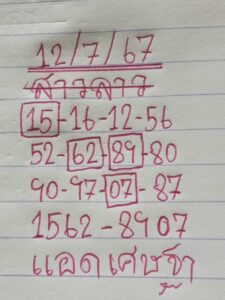 12/7/67
สาวลาว
15-16-12-56
52-62-89-80
90-97-07-87
1562-8907
แอดเศษจ้า